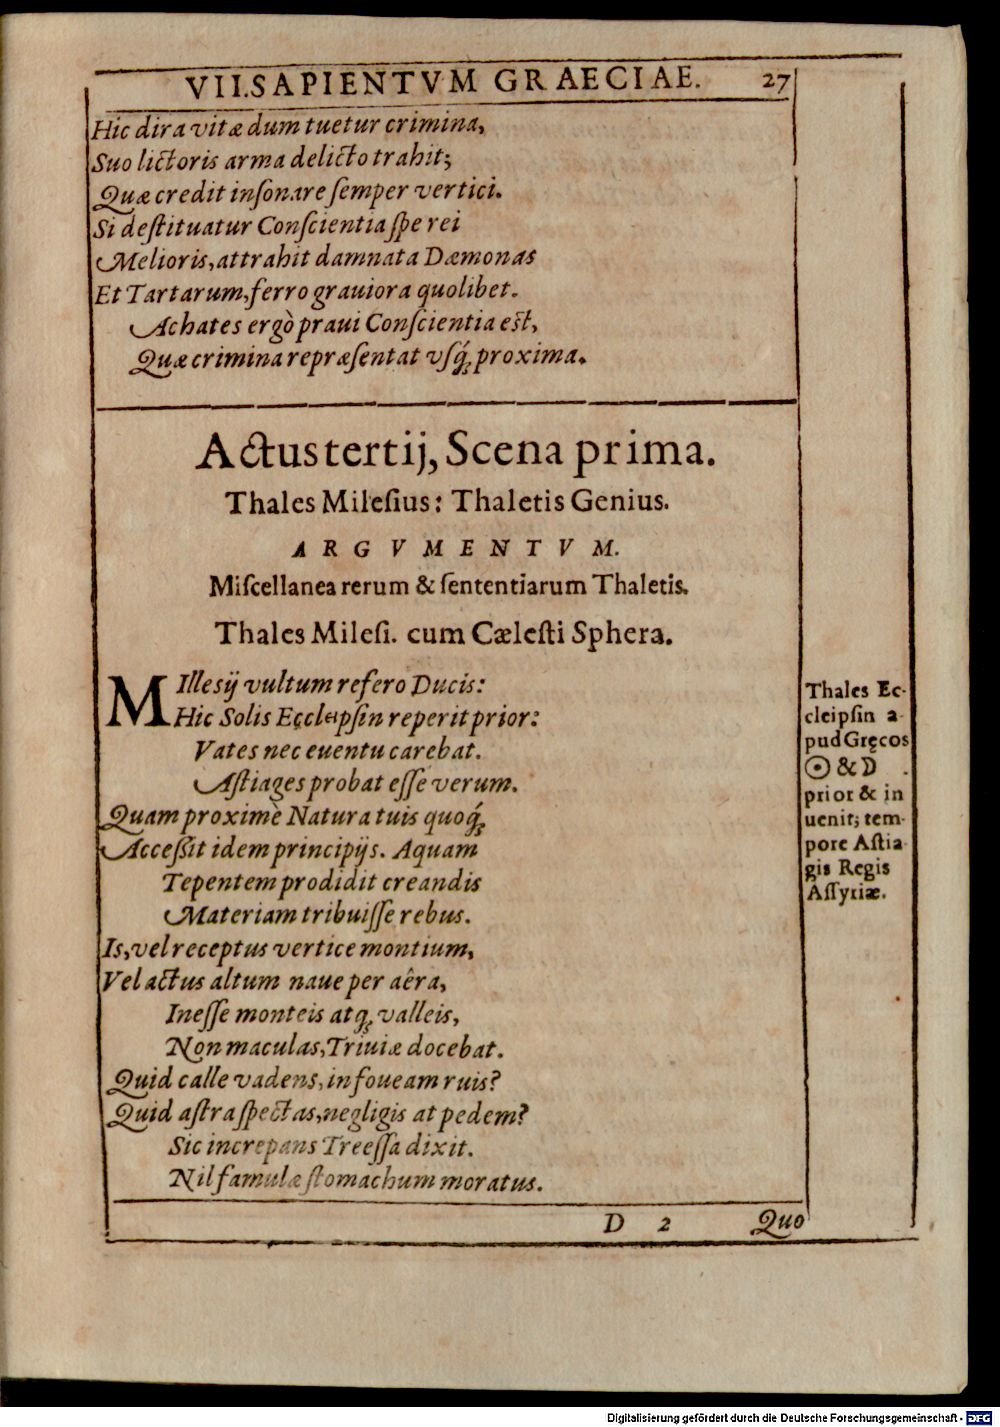 VII.SAPIENTVM GRAECIAE. 27
Hic dira vitæ dum tuetur crimina,
Suo lictoris arma delicto trahit;
Quæ credit inſonare ſemper vertici.
Si deſtituatur Conſcientia ſpe rei
Melioris, attrahit damnata Dæmonas
Et Tartarum, ferro grauiora quolibet.
Achates ergò praui Conſcientia est,
Quæ crimina repræſentat vſq́; proxima.
Actus tertij, Scena prima.
Thales Mileſius: Thaletis Genius.
ARGVMENTVM.
Miſcellanea rerum & ſententiarum Thaletis.
Thales Mileſi. cum Cæleſti Sphera.
MIlleſij vultum refero Ducis:
Hic Solis Eccleipſin reperit prior:
Vates nec euentu carebat.
Aſtiages probat eſſe verum.
Quam proximè Natura tuis quoq́;
Acceſſit idem principijs. Aquam
Tepentem prodidit creandis
Materiam tribuiſſe rebus.
Is, vel receptus vertice montium,
Vel actus altum naue per aêra,
Ineſſe monteis atq; valleis,
Non maculas, Triuiæ docebat.
Quid calle vadens, in foueam ruis?
Quid aſtra ſpectas, negligis at pedem?
Sic increpans Treeſſa dixit.
Nil famulæ ſtomachum moratus.
D 2 Quo
Thales Ec-
cleipſin a-
pud Gręcos
☉ & ☽
prior & in
uenit; tem-
pore Aſtia-
gis Regis
Aſſyriæ.
Digitalisierung gefördert durch die Deutsche Forschungsgemeinschaft - DFG